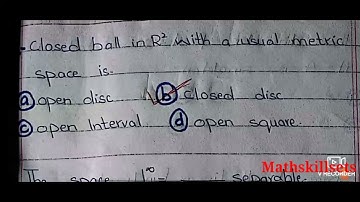 Closed ball in R² with a usual metric
space is.
a open disc b closed disc
c open Interval d open square.
The space l∞ is separable.
Mathskillsets